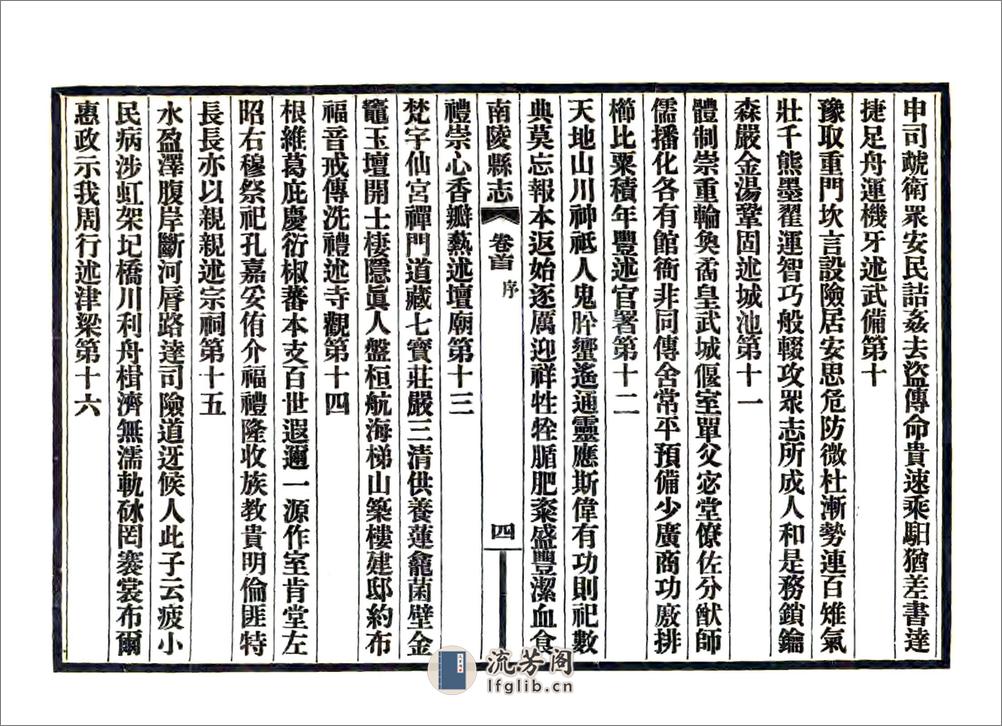 申司虣衛眾安民詰姦去盜傳命貴速乘馹猶差書達
捷足舟運機牙述武備第十
豫取重門坎言設險居安思危防微杜漸勢連百雉氣
壯千熊墨翟運智巧般輟攻眾志所成人和是務鎖鑰
森嚴金湯鞏固述城池第十一
體制崇重輪奐矞皇武城偃室單父宓堂僚佐分猷師
儒播化各有館衙非同傳舍常平預備少廣商功廒排
櫛比粟積年豐述官署第十二
天地山川神祗人鬼肸蠁遙通靈應斯偉有功則祀數
典莫忘報本返始逐厲迎祥牲牷腯肥粢盛豐潔血食
南陵縣志 卷首 序 四
禮崇心香瓣熱述壇廟第十三
梵字仙宮禪門道藏七寶莊嚴三清供養蓮龕菌壁金
竈玉壇開士棲隱眞人盤桓航海梯山築樓建邸約布
福音戒傳洗禮述寺觀第十四
根維葛庇慶衍椒蕃本支百世遐邇一源作室肯堂左
昭右穆祭祀孔嘉妥侑介福禮隆收族教貴明倫匪特
長長亦以親親述宗祠第十五
水盈澤腹岸斷河脣路達司險道迓候人此子云疲小
民病涉虹架圮橋川利舟楫濟無濡軌砅罔褰裳布爾
惠政示我周行述津梁第十六
流芳閣
lfglib.cn